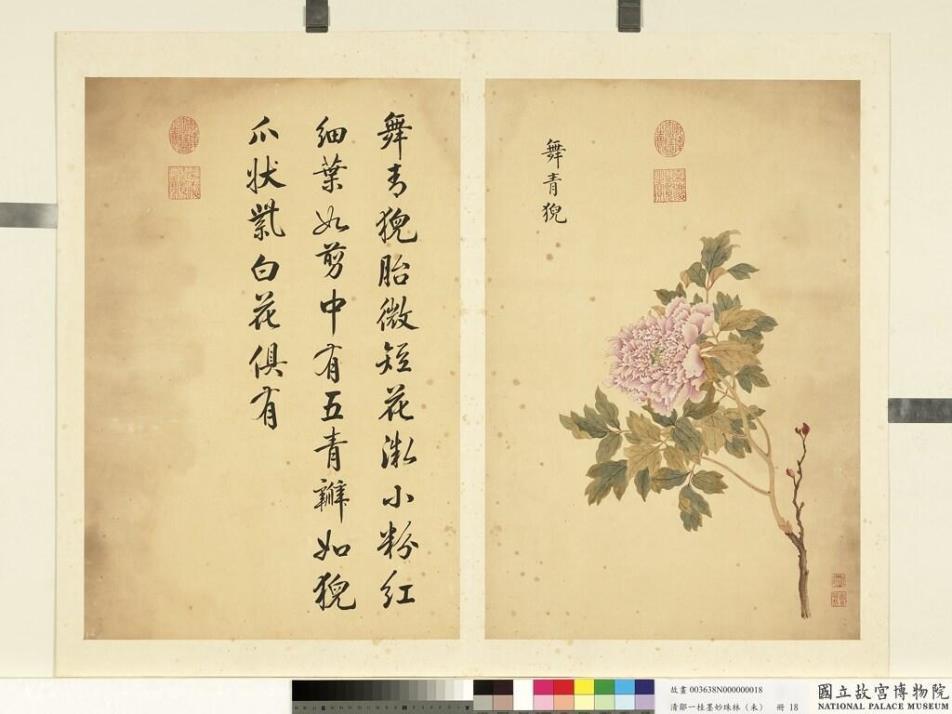 舞青猊
舞青猊胎微短花瀓小粉紅
細葉如剪中有五青瓣如猊
爪狀紫白花俱有
故畫 003638N000000018
清鄒一桂墨妙珠林（未） 冊 18
國立故宮博物院
NATIONAL PALACE MUSEUM